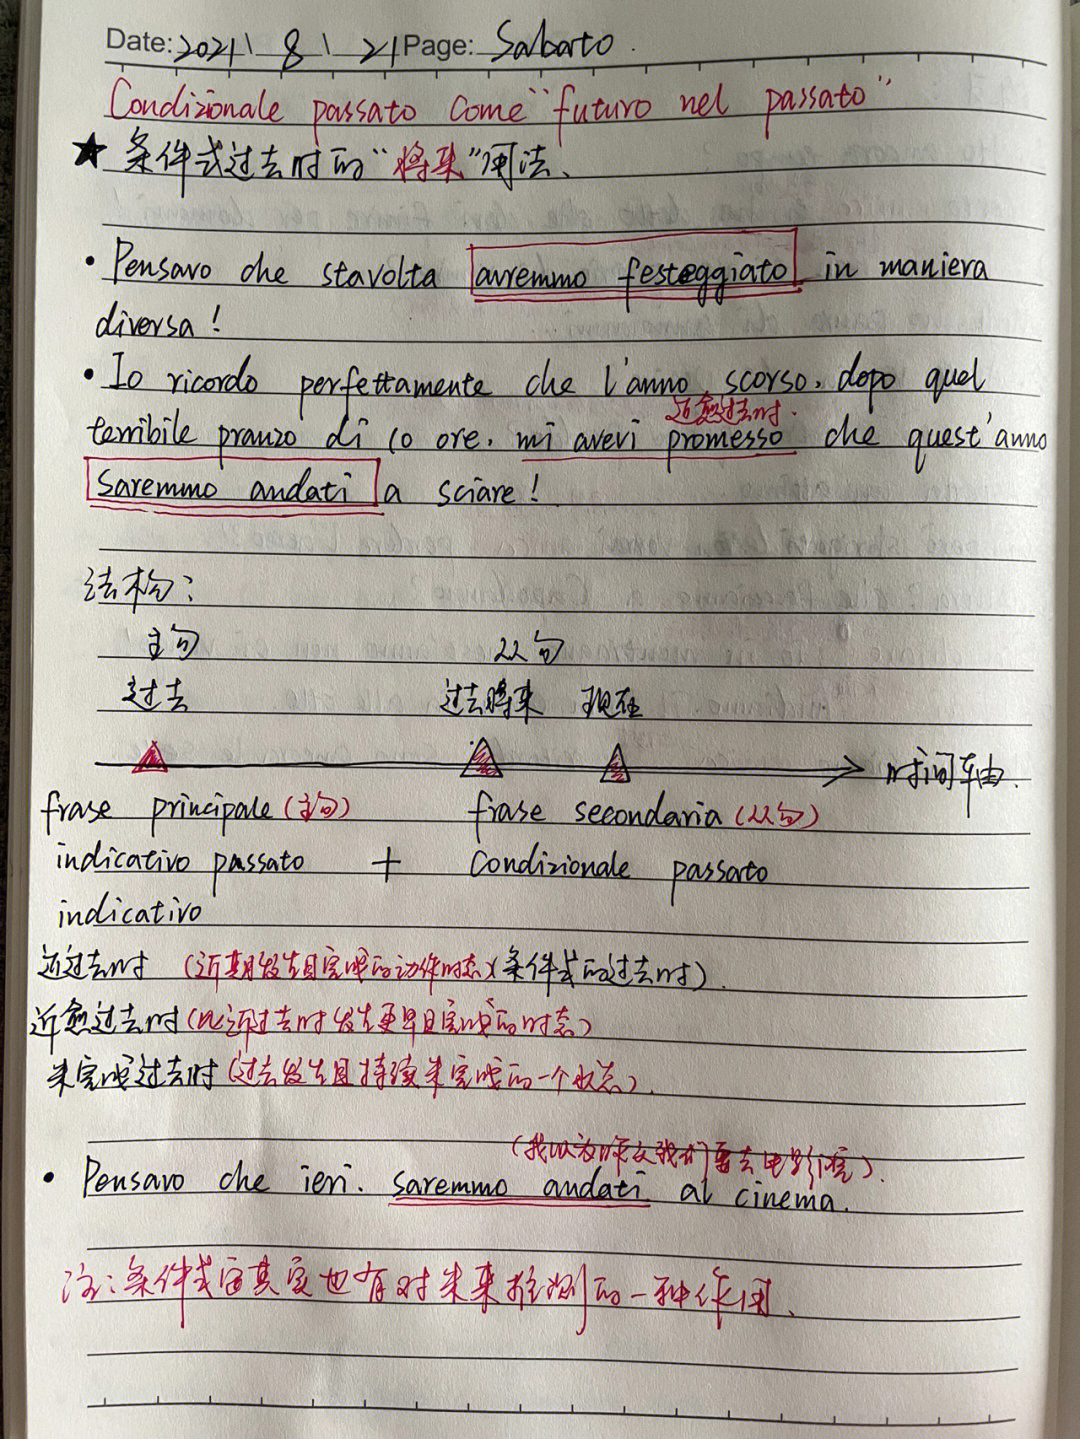 Date: 2021 \ 8 \ 21 Page: Sabarto.
Condizionale passato come "futuro nel passato"
★ 条件式过去时的"将来"用法、
• Pensavo che stavolta avremmo festeggiato in maniera
diversa!
• Io ricordo perfettamente che l'anno scorso, dopo quel
近愈过去时.
terribile pranzo di 10 ore, mi avevi promesso che quest'anno
saremmo andati a sciare!
结构:
主句 从句
过去 过去将来 现在
时间轴.
frase principale (主句) frase secondaria (从句)
indicativo passato + condizionale passato
indicativo
近过去时 (近期发生且完成的动作时态) (条件式的过去时).
近愈过去时 (比近过去时发生更早且完成的时态)
未完成过去时 (过去发生且持续未完成的一个状态).
(我以为昨天我们要去电影院).
• Pensavo che ieri. saremmo andati al cinema.
注:条件式宙其实也有对未来推测的一种作用、